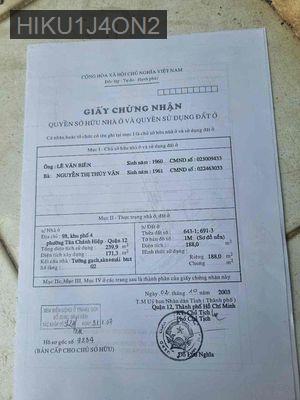 HIKU1J4ON2
CỘNG HÒA XÃ HỘI CHỦ NGHĨA VIỆT NAM
Độc lập - Tự do - Hạnh phúc
GIẤY CHỨNG NHẬN
QUYỀN SỞ HỮU NHÀ Ở VÀ QUYỀN SỬ DỤNG ĐẤT Ở
Cá nhân, hoặc tổ chức có tên ghi tại mục I là chủ sở hữu nhà ở và sử dụng đất ở
Mục I - Chủ sở hữu nhà ở và sử dụng đất ở
Ông : LÊ VĂN BIÊN Sinh năm : 1960 CMND số : 023009433
Bà : NGUYỄN THỊ THÚY VÂN Sinh năm : 1961 CMND số : 022463033
Mục II - Thực trạng nhà ở, đất ở
a/ Nhà ở
Địa chỉ : 9B, khu phố 4
phường Tân Chánh Hiệp - Quận 12
Tổng diện tích sử dụng : 239,9 m²
Diện tích xây dựng : 171,3 m²
Kết cấu nhà : Tường gạch, sàn
Số tầng : 02
b/ Đất ở
Thửa đất số : 643-1; 691-3
Tờ bản đồ số : 1M (Sơ đồ nền)
Diện tích đất : 188,0 m²
Hình thức sử dụng :
Riêng : 188,0 m²
Chung : m²
Mục III, Mục IV ở các trang sau là thành phần của giấy chứng nhận này
2003
T.M Uỷ ban Nhân dân Tỉnh (Thành phố)
Quận 12, Thành phố Hồ Chí Minh
Chủ Tịch
Hồ sơ gốc số 9234
(BẢN CẤP CHO CHỦ SỞ HỮU)
Nghĩa